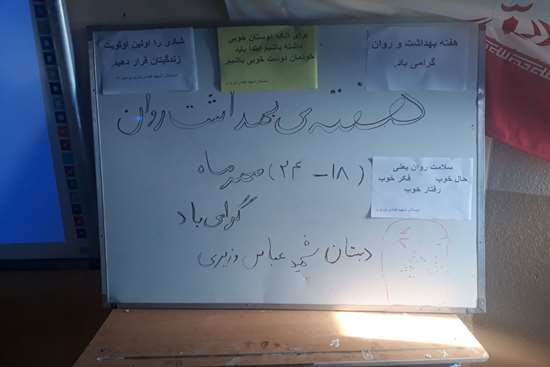 هفته بهداشت و روان
گرامی باد.
برای آنکه دوستان خوبی
داشته باشیم ابتدا باید
خودمان دوست خوبی باشیم.
شادی را اولین اولویت
زندگیتان قرار دهید.
هفته ی بهداشت روان
(۱۸ - ۲۴) مهر ماه
گرامی باد
دبستان شهید عباس وزیری
سلامت روان یعنی
حال خوب فکر خوب
رفتار خوب